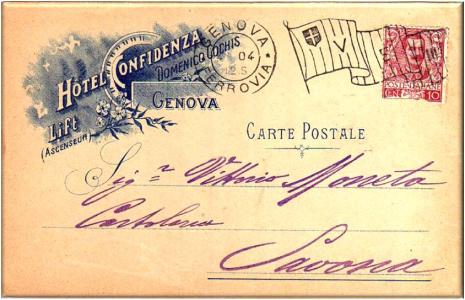 HOTEL CONFIDENZA
DOMENICO COCHIS
GENOVA
Lift
(ASCENSEUR)
GENOVA
04
12.S
FERROVIA
V
POSTE ITALIANE
CEN. 10
CARTE POSTALE
Sig.r Vittorio Moneta
Cartoleria
Savona